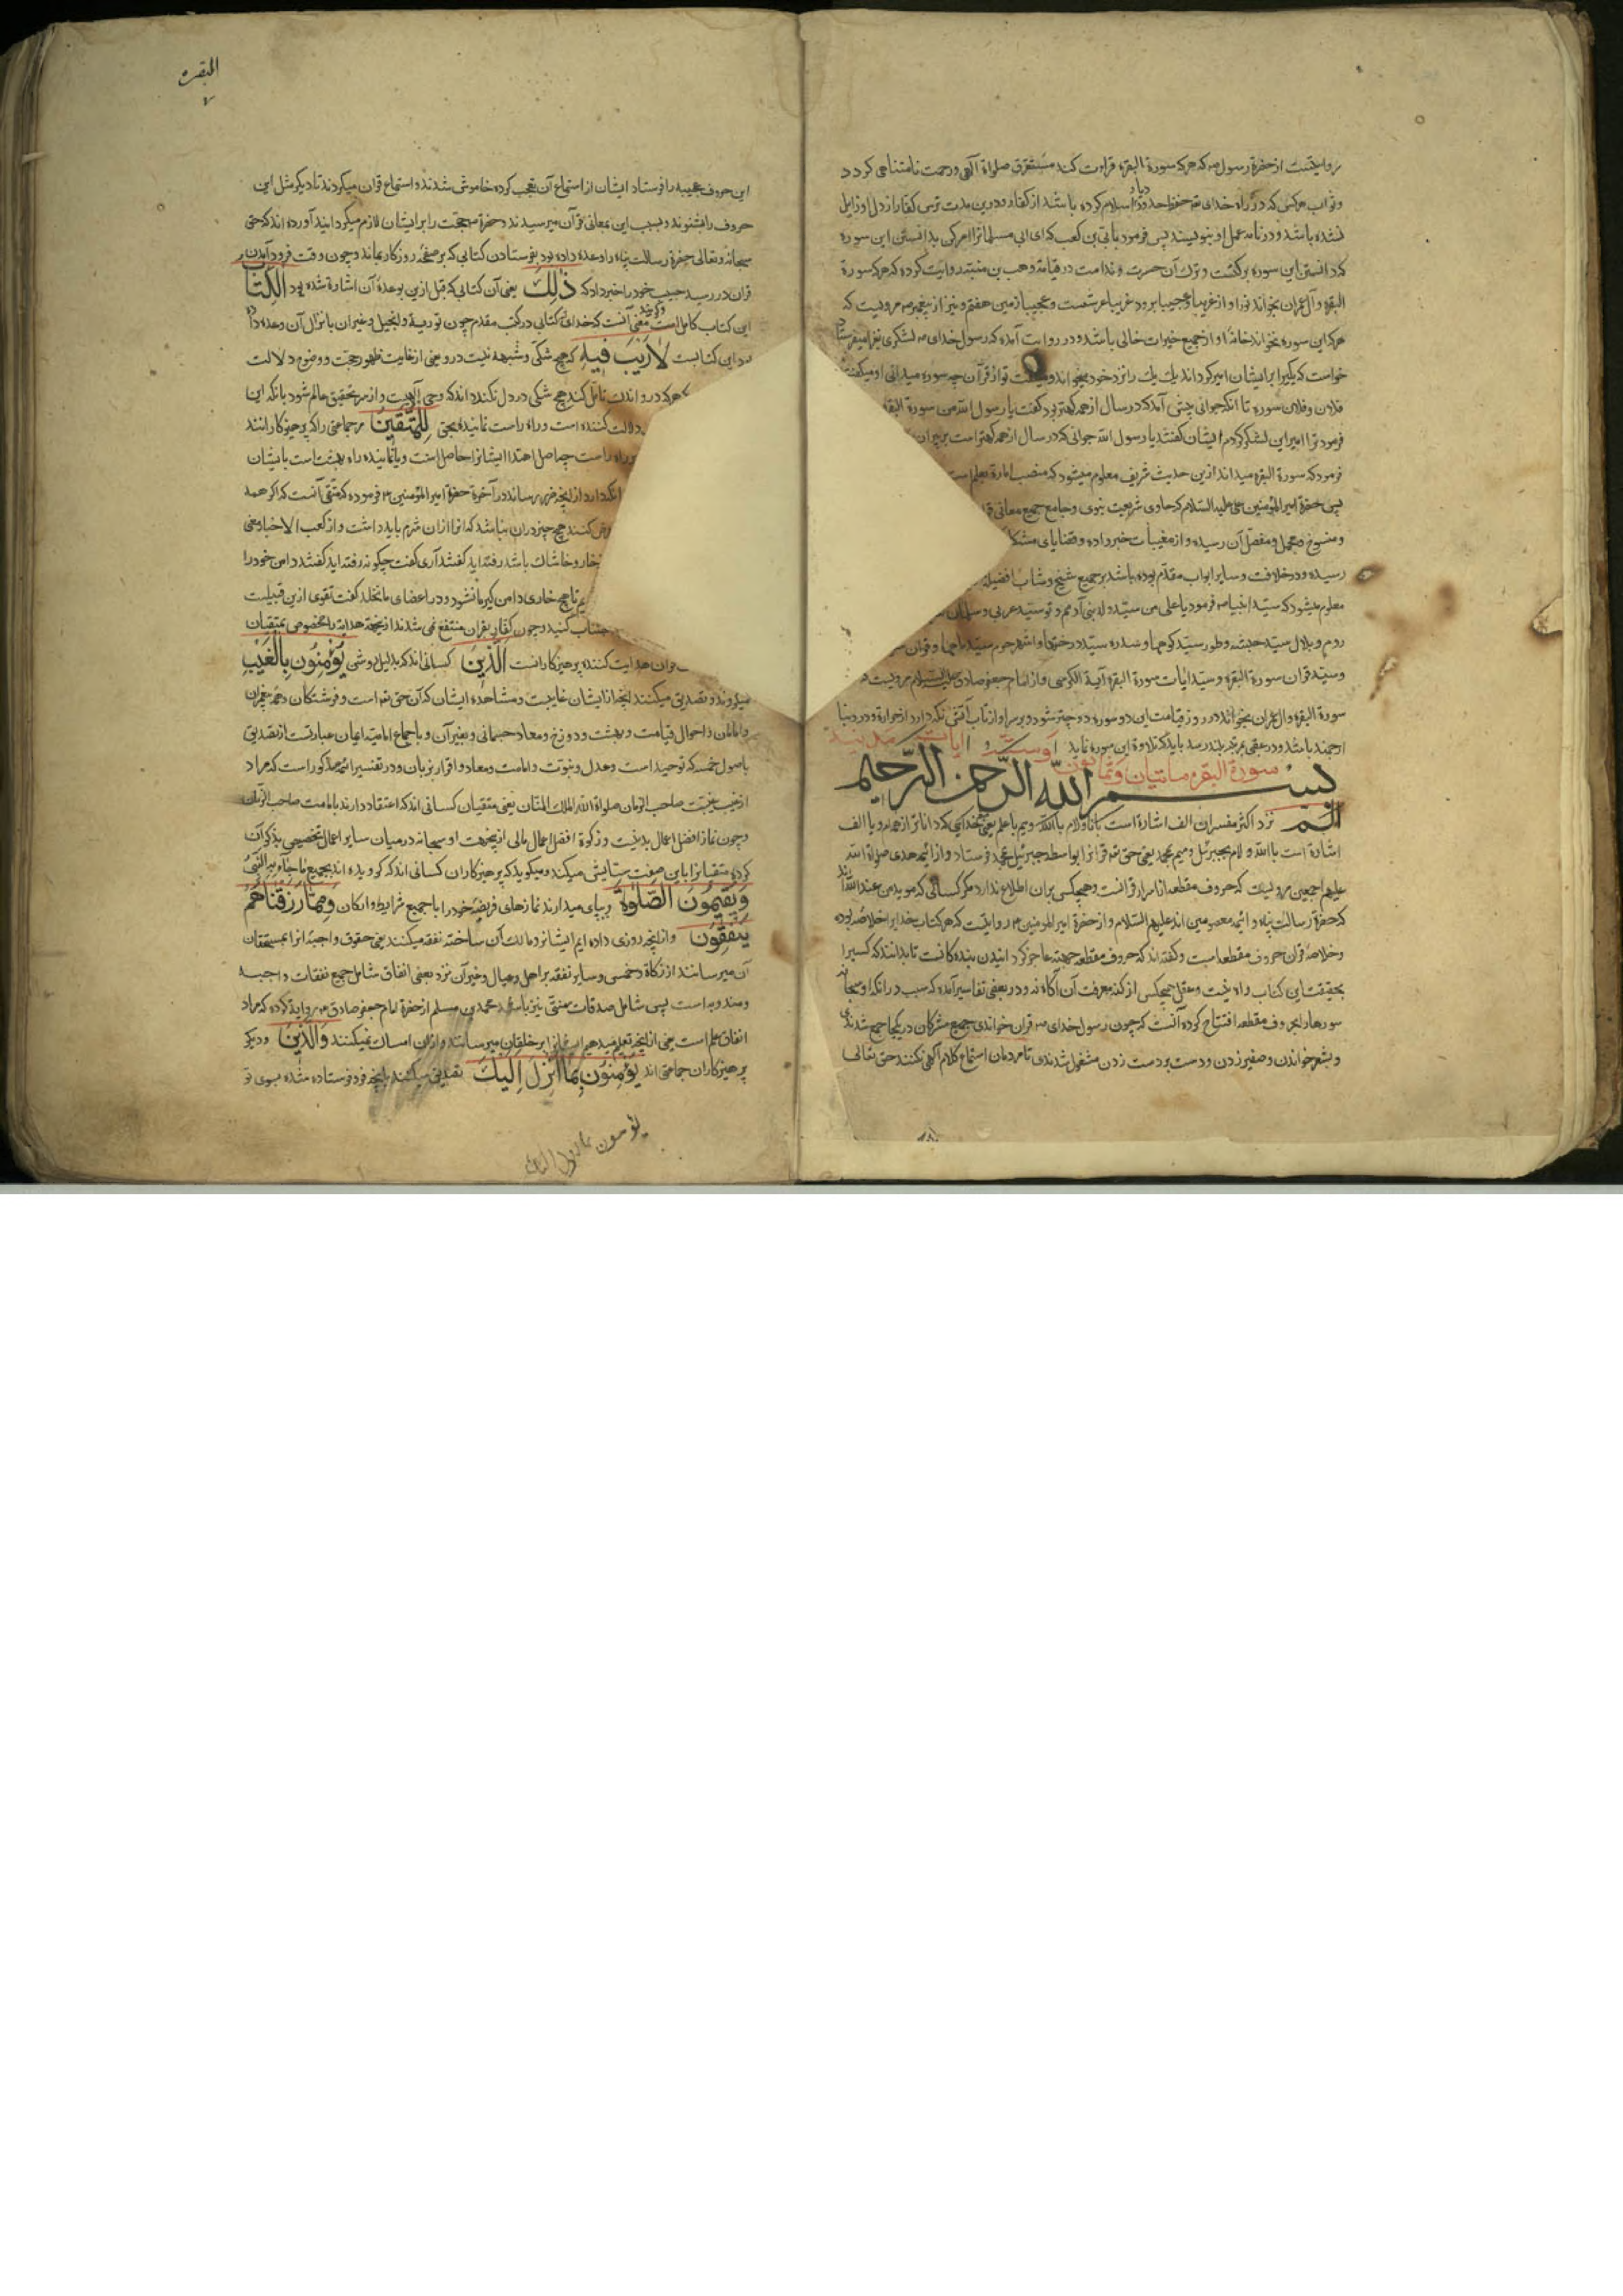 روایتست از حضرة رسول صه که هرکه سورة البقره قراءت کند مستغرق صلواة الهی و رحمت نامتناهی کردد
و ثواب هرکس که در راه خدای تع حفظ حدود دیار اسلام کرده باشد از کفار و درین مدت ترس کفار از دل او زایل
نشده باشد و در نامه عمل او بنویسند پس فرمود بابی بن کعب که ای ابی مسلمانرا امر کن بدانستن این سوره
که دانستن این سوره برکتست و ترک آن حسرت و ندامت در قیامة و وهب بن منبه روایت کرده که هرکه سورة
البقره و آل عمران بخواند نورا و از غریبا و عجیبا برود غریبا عرشست و عجیبا زمین هفتم و نیز از پیغمبر صه مرویست که
هرکه این سوره بخواند خانه او از جمیع خیرات خالی باشد و در روایت آمده که رسول خدای صه لشکری بغزا میفرستاد
خواست که یکیرا بر ایشان امیر کرداند یک یک را نزد خود میخواند و میکفت تو از قرآن چه سوره میدانی او میکفت
فلان و فلان سوره تا آنکه جوانی پیش آمد که در سال از همه کهتر بود کفت یا رسول الله من سورة البقره
فرمود ترا امیر این لشکر کردم ایشان کفتند یا رسول الله جوانی که در سال از همه کهتر است بر پیران
فرمود که سورة البقره میداند ازین حدیث شریف معلوم میشود که منصب امارة بعلم است
پس حضرة امیر المؤمنین علی علیه السلام که حاوی شریعت نبوی و جامع جمیع معانی
و منسوخ و مجمل و مفصل آن رسیده و از مغیبات خبر داده و قضایای
رسیده و در خلافت و سایر ابواب مقدم بوده باشد بر جمیع شیخ و شاب
معلوم میشود که سید انبیا صه فرمود یا علی من سید ولد بنی آدمم و تو سید عربی و سلمان
روم و بلال سید حبشه و طور سید کوهها و سدره سید درختها و اشهر حرم سید ماهها و قرآن
و سید قران سورة البقره و سید ایات سورة البقره آیة الکرسی و از امام جعفر صادق علیه السلام مرویست
سورة البقره و ال عمران بخواند در روز قیامت این دو سوره دو چتر شود و بر سر او از تاب آفتاب نکه دارد از حرارة و در دنیا
ارجمند باشد و در عقبی بمرتبه بلند رسد باید که تلاوة این سوره نماید
سورة البقره مائتیان و ثمانون
بسم الله الرحمن الرحیم
الم نزد اکثر مفسران الف اشارة است بانا و لام بالله و میم باعلم یعنی منم خدایی که داناتر از همه ام و یا الف
اشارة است بالله و لام بجبرئیل و میم بمحمد یعنی حق تع قرانرا بواسطه جبرئیل بمحمد فرستاد و از ائمه هدی صلواة الله
علیهم اجمعین مرویست که حروف مقطعه از اسرار قرانست و هیچکس بران اطلاع ندارد مکر کسانی که مؤید من عند الله اند
که حضرة رسالت پناه و ائمه معصومین اند علیهم السلام و از حضرة امیر المومنین ۴ روایتست که هر کتاب خدایرا خلاصه بوده
و خلاصه قران حروف مقطعه است و کفته اند که حروف مقطعه جهة عاجز کردانیدن بندکانست تا بدانند که کسیرا
بحقیقت این کتاب راه نیست و عقل هیچکس از کنه معرفت آن آکاه نه و در بعضی تفاسیر آمده که سبب در آنکه او سبحانه
سورها را بحروف مقطعه افتتاح کرده آنست که چون رسول خدای صه قران خواندی جمیع مشرکان در یکجا جمع شدندی
و بشعر خواندن و صفیر زدن و دست بر دست زدن مشغول شدندی تا مردمان استماع کلام الهی نکنند حق تعالی
البقره
۷
این حروف عجیبه را فرستاد ایشان از استماع آن تعجب کرده خاموش شدند و استماع قران میکردند تا دیکر مثل این
حروف را بشنوند و بسبب این بمعانی قرآن میرسیدند و حضرة صه حجت را بر ایشان لازم میکردانید آورده اند که حق
سبحانه و تعالی حضرة رسالت پناه را وعده داده بود بفرستادن کتابی که بر صفحه روزکار بماند و چون وقت فرود آمدن
قران در رسید حبیب خود را خبر داد که ذلک یعنی آن کتابی که قبل ازین بوعده آن اشارة شده بود الکتاب
این کتاب کامل است و کویند معنی آنست که خدای تع کتابی در کتب مقدم چون توریة و انجیل و غیر آن بانزال آن وعده داده
بود این کتابست لا ریب فیه که هیچ شکی و شبهه نیست درو یعنی از غایت ظهور حجت و وضوح دلالت
هرکه درو اندک تامل کند هیچ شکی در دل نکذراند که وحی آلهیست و از سر تحقیق عالم شود بانکه این
دلالت کننده است و راه راست نماینده بحق للمتقین مر جماعتی را که پرهیزکارانند
راه راست چه اصل اهتدا ایشانرا حاصل است و یا نماینده راه بهشت است بایشان
نکه دارد از انچه ضرر رساند در آخرة حضرة امیر المؤمنین ۴ فرموده که متقی آنست که اکر همه
عرض کنند هیچ چیز دران نباشد که انرا ازان شرم باید داشت و از کعب الاخبار معنی
بخار و خاشاک باشد رفته اید کفتند آری کفت چکونه رفته اید کفتند دامن خود را
تا هیچ خاری دامن کیر ما نشود و در اعضای ما نخلد کفت تقوی ازین قبیلست
اجتناب کنید و چون کفار بقران منتفع نمی شدند ازینجهة هدایة را مخصوص بمتقیان
قران هدایت کننده پرهیزکارانست الذین کسانی اند که بدلیل روشن یؤمنون بالغیب
میکروند و تصدیق میکنند انچه از ایشان غایبست و مشاهده ایشان که آن حق تع است و فرشتکان و همه پیغمبران
و امامان و احوال قیامت و بهشت و دوزخ و معاد جسمانی و بغیر آن و باجماع امامیه ایمان عبارتست از تصدیق
باصول خمسه که توحید است و عدل و نبوت و امامت و معاد و اقرار بزبان و در تفسیر ائمه مذکور است که مراد
از غیب غیبت صاحب الزمان صلواة الله الملک المنان یعنی متقیان کسانی اند که اعتقاد دارند بامامت صاحب الزمان
و چون نماز افضل اعمال بدنیست و زکوة افضل اعمال مالی ازینجهت او سبحانه در میان سایر اعمال تخصیص بذکر آن
کرده متقیانرا باین صفت ستایش میکند و میکوید که پرهیزکاران کسانی اند که کرویده اند بجمیع ما جاء به النبی
و یقیمون الصلوة و بپای میدارند نمازهای فریضه خود را با جمیع شرایط و ارکان و مما رزقناهم
ینفقون و از انچه روزی داده ایم ایشانرا و مالک آن ساخته نفقه میکنند یعنی حقوق واجبه انرا بمستحقان
آن میرسانند از زکاة و خمس و سایر نفقه بر اهل و عیال و غیر آن نزد بعضی انفاق شامل جمیع نفقات واجبه
و مندوبه است پس شامل صدقات سنتی نیز باشد محمد بن مسلم از حضرة امام جعفر صادق ۴ روایة کرده که مراد
انفاق علم است یعنی از انچه تعلیم میدهیم ایشانرا بر خلقان میرسانند و ازان امساک نمیکنند و الذین و دیکر
پرهیزکاران جماعتی اند یؤمنون بما انزل الیک تصدیق میکنند بانچه فرو فرستاده شده بسوی تو
یؤمنون بما انزل الیک